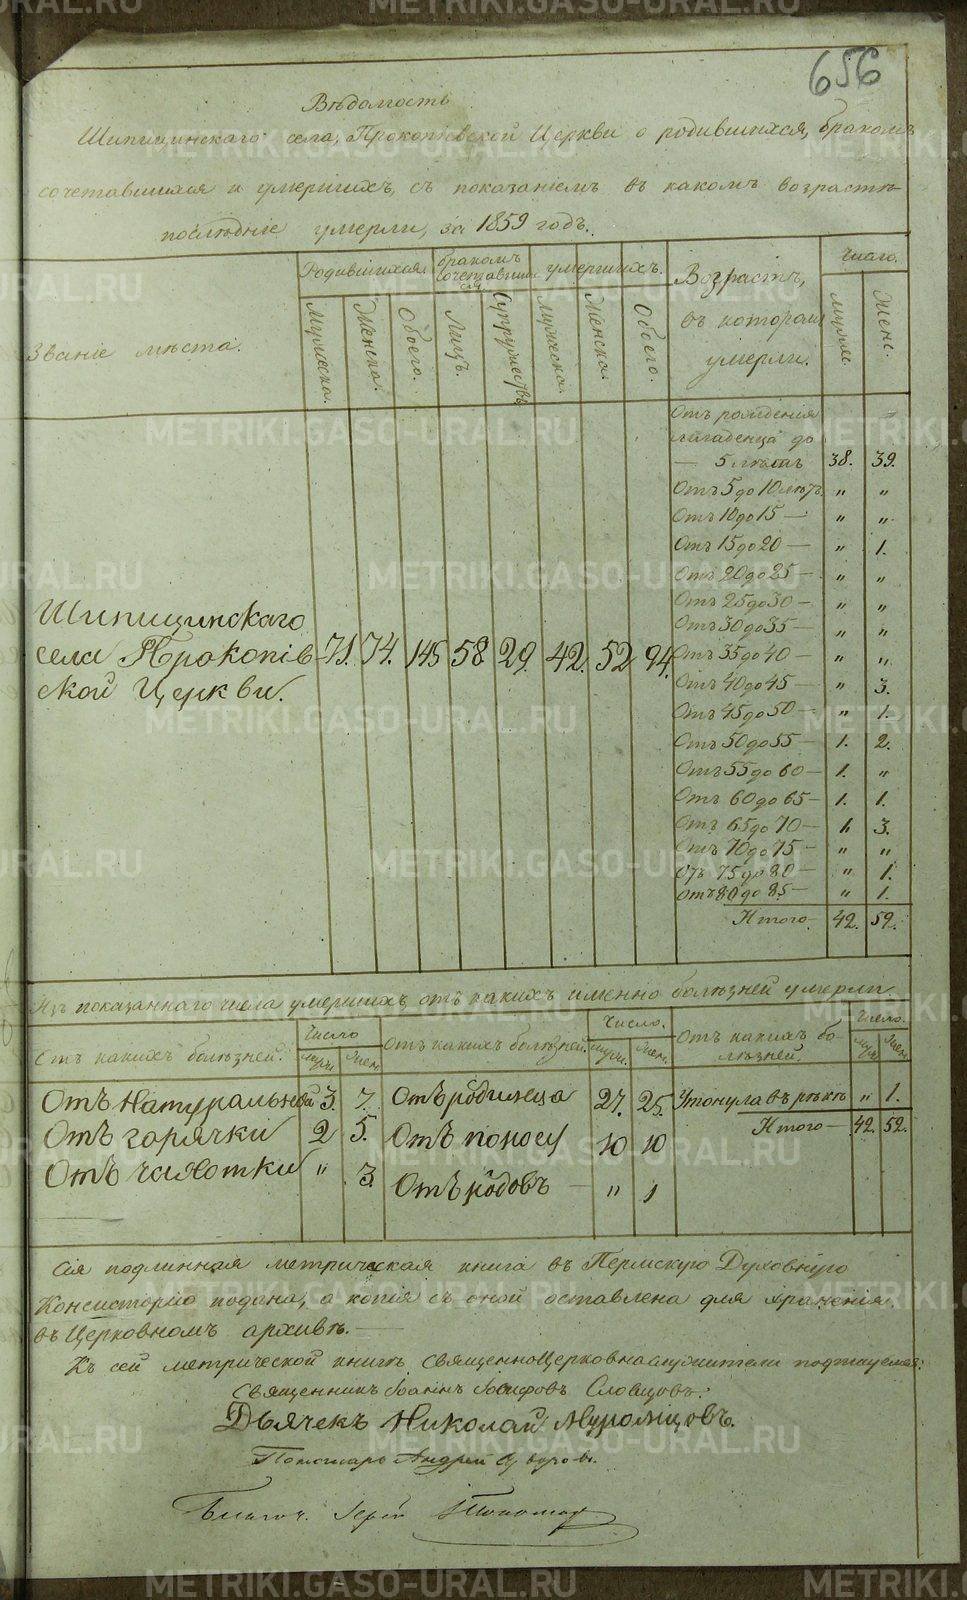 656
Вѣдомость
Шипицинскаго села, Прокопіевской Церкви о родившихся, бракомъ
сочетавшихся и умершихъ, съ показаніемъ въ какомъ возрастѣ
послѣдніе умерли, за 1859 годъ.
Званіе мѣста.
Родившихся
Мужеска.
Женска.
Обоего.
бракомъ
сочетавших
ся.
Лицъ.
Супружествъ
умершихъ.
Мужеска.
Женска.
Обоего.
Возрастъ,
въ которомъ
умерли.
Число.
муж.
Жен.
Шипицинскаго
села Прокопіев
ской Церкви.
71. 74. 145 58 29. 42. 52 94.
Отъ рожденія
младенца до
— 5 лѣтъ 38. 39.
Отъ 5 до 10 лѣтъ " "
Отъ 10 до 15 — " "
Отъ 15 до 20 — " 1.
Отъ 20 до 25 — " "
Отъ 25 до 30 — " "
Отъ 30 до 35 — " "
Отъ 35 до 40 — " "
Отъ 40 до 45 — " 3.
Отъ 45 до 50 — " 1.
Отъ 50 до 55 — 1. 2.
Отъ 55 до 60 — 1. "
Отъ 60 до 65 — 1. 1.
Отъ 65 до 70 — 1. 3.
Отъ 70 до 75 — " "
Отъ 75 до 80 — " 1.
Отъ 80 до 85 — " 1.
Итого 42. 52.
Изъ показаннаго числа умершихъ, отъ какихъ именно болѣзней умерли.
Отъ какихъ болѣзней.
Число
муж.
Жен.
Отъ какихъ болѣзней.
Число.
муж.
Жен.
Отъ какихъ бо-
лѣзней.
Число.
муж.
Жен.
Отъ Натуральной 3. 7.
Отъ горячки 2 5.
Отъ чахотки " 3.
Отъ родимца 27. 25.
Отъ поносу 10 10
Отъ родовъ — " 1
Утонула въ рѣкѣ " 1.
Итого — 42. 52.
Сія подлинная метрическая книга въ Пермскую Духовную
Консисторію подана, а копія съ оной оставлена для храненія
въ Церковномъ архивѣ. —
Къ сей метрической книгѣ священноцерковнослужители подписуемся:
Священникъ Іоаннъ Іосифовъ Словцовъ.
Дьячекъ Николай Муромцовъ.
Пономарь Андрей
METRIKI.GASO-URAL.RU